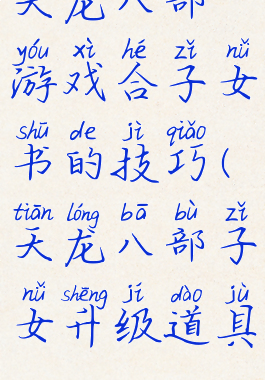 天龙八部
yóu xì hé zǐ nǚ
游戏合子女
shū de jì qiǎo
书的技巧(
tiān lóng bā bù zǐ
天龙八部子
nǚ shēng jí dào jù
女升级道具